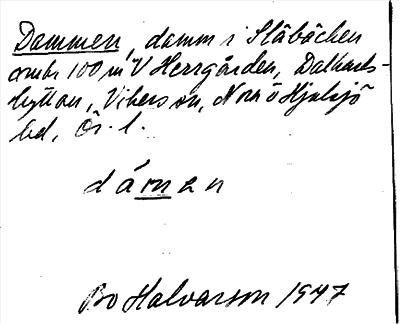 Dammen, damm i Slåbäcken
omkr 100 m V Herrgården, Dalkarls-
hyttan, Vikers sn, Nora o Hjulsjö
bd, Ör. l.
dámen
Bo Halvarson 1947